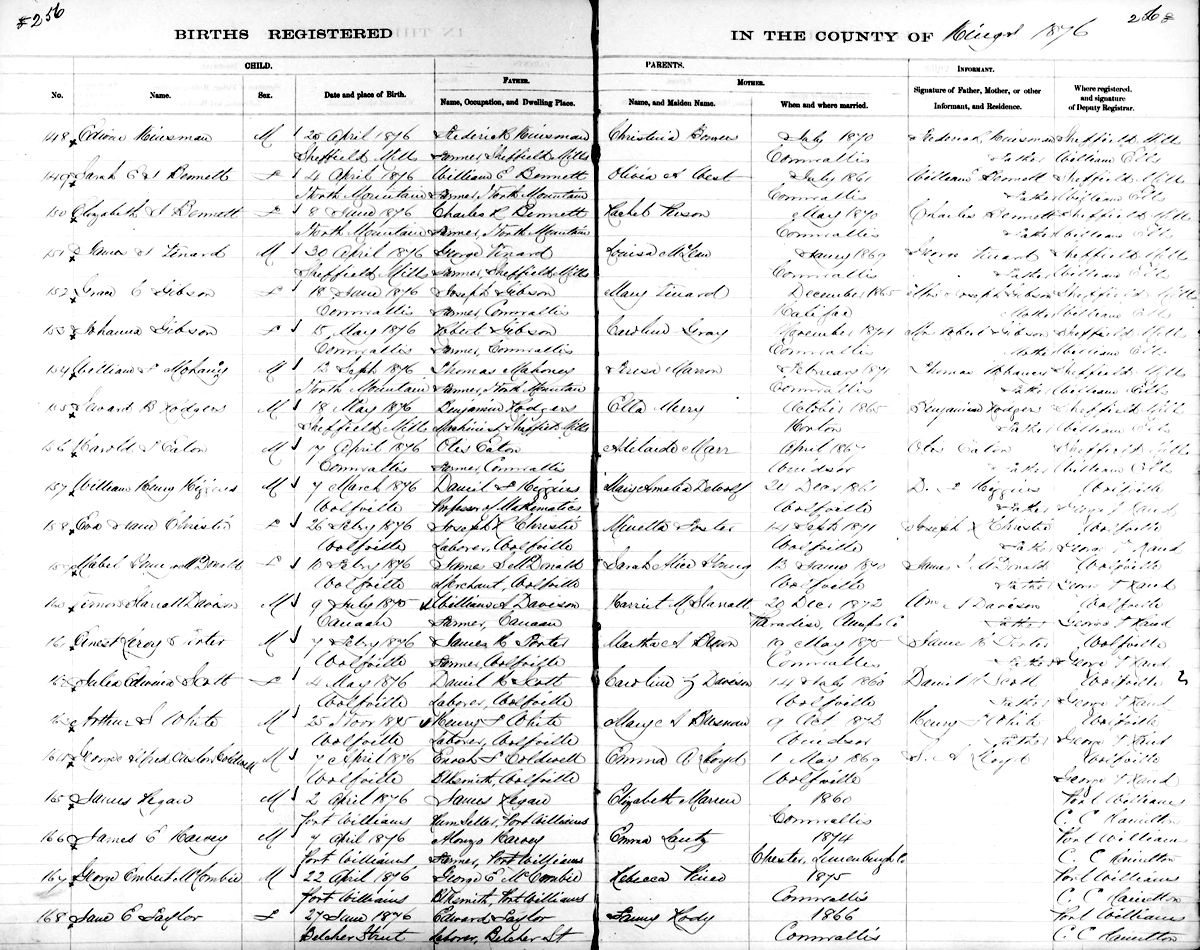 256
BIRTHS REGISTERED IN THE COUNTY OF Kings 1876
CHILD. PARENTS.
FATHER. MOTHER. INFORMANT.
No. Name. Sex. Date and place of Birth. Name, Occupation, and Dwelling Place. Name, and Maiden Name. When and where married. Signature of Father, Mother, or other Informant, and Residence. Where registered, and signature of Deputy Registrar.
148 Edwin Kinsman M 25 April 1876 Frederick Kinsman Christina July 1870 Frederick Kinsman Sheffield Mills
Sheffield Mills Farmer, Sheffield Mills Cornwallis Father William Ells
149 Sarah E Bennett F 4 April 1876 William E Bennett Olivia A West July 1861 William E Bennett Sheffield Mills
North Mountain Farmer, North Mountain Cornwallis Father William Ells
150 Elizabeth Bennett F 8 June 1876 Charles R Bennett Rachel May 1870 Charles Bennett Sheffield Mills
North Mountain Farmer, North Mountain Cornwallis Father William Ells
151 James M 30 April 1876 George Louisa McLean 1869 George Sheffield Mills
Sheffield Mills Farmer, Sheffield Mills Cornwallis Father William Ells
152 Grace E Gibson F 18 June 1876 Joseph Gibson Mary December 1865 Mrs Joseph Gibson Sheffield Mills
Cornwallis Farmer, Cornwallis Halifax Mother William Ells
153 Johanna Gibson F 15 May 1876 Robert Gibson Caroline Gray November 1871 Mrs Robert Gibson Sheffield Mills
Cornwallis Farmer, Cornwallis Cornwallis Mother William Ells
154 William M 13 Sept 1876 Thomas Mahoney Teresa Marron February 1871 Thomas Mahoney Sheffield Mills
North Mountain Farmer, North Mountain Cornwallis Father William Ells
155 B Rodgers M 18 May 1876 Benjamin Rodgers Ella Merry October 1865 Benjamin Rodgers Sheffield Mills
Sheffield Mills Machinist Sheffield Mills Horton Father William Ells
156 Harold Eaton M 7 April 1876 Otis Eaton Adelaide Marr April 1867 Otis Eaton Sheffield Mills
Cornwallis Farmer, Cornwallis Windsor Father William Ells
157 William Henry Higgins M 7 March 1876 Daniel F Higgins Amelia DeWolf 24 Dec 1861 D. F Higgins Wolfville
Wolfville Professor of Mathematics Wolfville Father George T Rand
158 Eva Jane Christie F 26 Feby 1876 Joseph Christie Minetta Foster 14 Sept 1871 Joseph Christie Wolfville
Wolfville Laborer, Wolfville Wolfville Father George T Rand
159 Mabel McDonald F 10 Feby 1876 James S McDonald Sarah Alice 13 June 1870 James S McDonald Wolfville
Wolfville Merchant, Wolfville Wolfville Father George T Rand
160 Starratt Davison M 9 July 1875 William S Davison Harriet M Starratt 20 Dec 1872 Wm S Davison Wolfville
Canaan Farmer, Canaan Paradise, Father George T Rand
161 Ernest Leroy Porter M 7 Feby 1876 James H. Porter Martha A 19 May 1875 James H Porter Wolfville
Wolfville Farmer, Wolfville Cornwallis Father George T Rand
162 Julia Edwina Scott F 4 May 1876 Daniel H Scott Caroline Davison 14 July 1860 Daniel H Scott Wolfville
Wolfville Laborer, Wolfville Wolfville Father George T Rand
163 Arthur S White M 25 Novr 1875 Henry F White Mary A 9 Oct 1873 Henry F White Wolfville
Wolfville Laborer, Wolfville Windsor Father George T Rand
164 George Alfred Coldwell M 7 April 1876 Enoch F Coldwell Emma A Lloyd 1 May 1869 Wolfville
Wolfville Blksmith, Wolfville Wolfville George T Rand
165 James Regan M 2 April 1876 James Regan Elizabeth Marren 1860 Port Williams
Port Williams Rumseller, Port Williams Cornwallis C. E Hamilton
166 James E Harvey M 7 April 1876 Alonzo Harvey Emma Lantz 1874 Port Williams
Port Williams Farmer, Port Williams Chester, Lunenburg Co C. E Hamilton
167 George Embert McCombie M 22 April 1876 George E McCombie Rebecca 1875 Port Williams
Port Williams Blksmith, Port Williams Cornwallis C. E Hamilton
168 Jane E Taylor F 27 June 1876 Edward Taylor Fanny 1866 Port Williams
Belcher Street Laborer, Belcher St Cornwallis C. E Hamilton